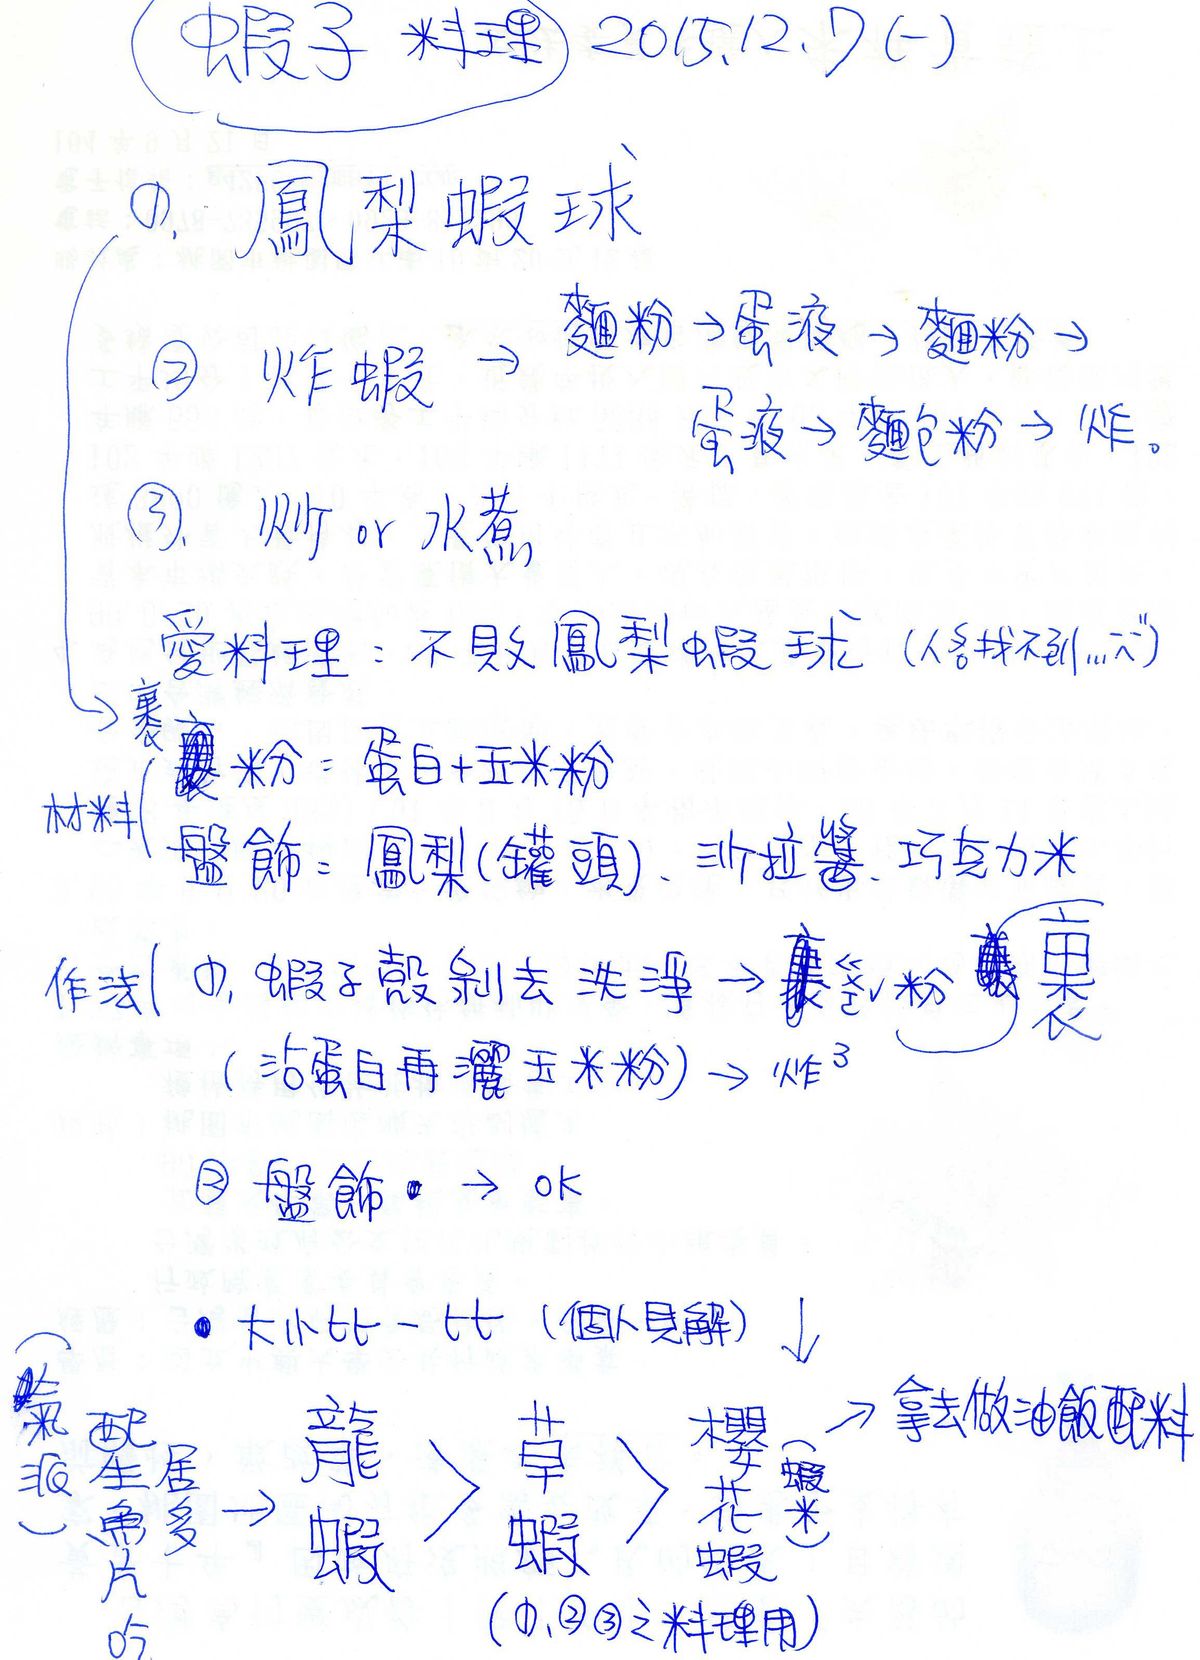 蝦子 料理 2015.12.7 (一)
①. 鳳梨蝦球
② 炸蝦 → 麵粉 → 蛋液 → 麵粉 →
蛋液 → 麵包粉 → 炸。
③. 炒 or 水煮
愛料理：不敗鳳梨蝦球 (人名找不到...)
裹
粉：蛋白+玉米粉
材料
盤飾：鳳梨(罐頭)、沙拉醬、巧克力米
作法 ①. 蝦子殼剝去洗淨 → 裹粉 裹
(沾蛋白再灑玉米粉) → 炸³
② 盤飾 → OK
• 大小比一比 (個人見解) ↓
(氣派) 配生魚片吃居多 → 龍蝦 > 草蝦 > 櫻花蝦 (蝦米) → 拿去做油飯配料
(①、②③之料理用)